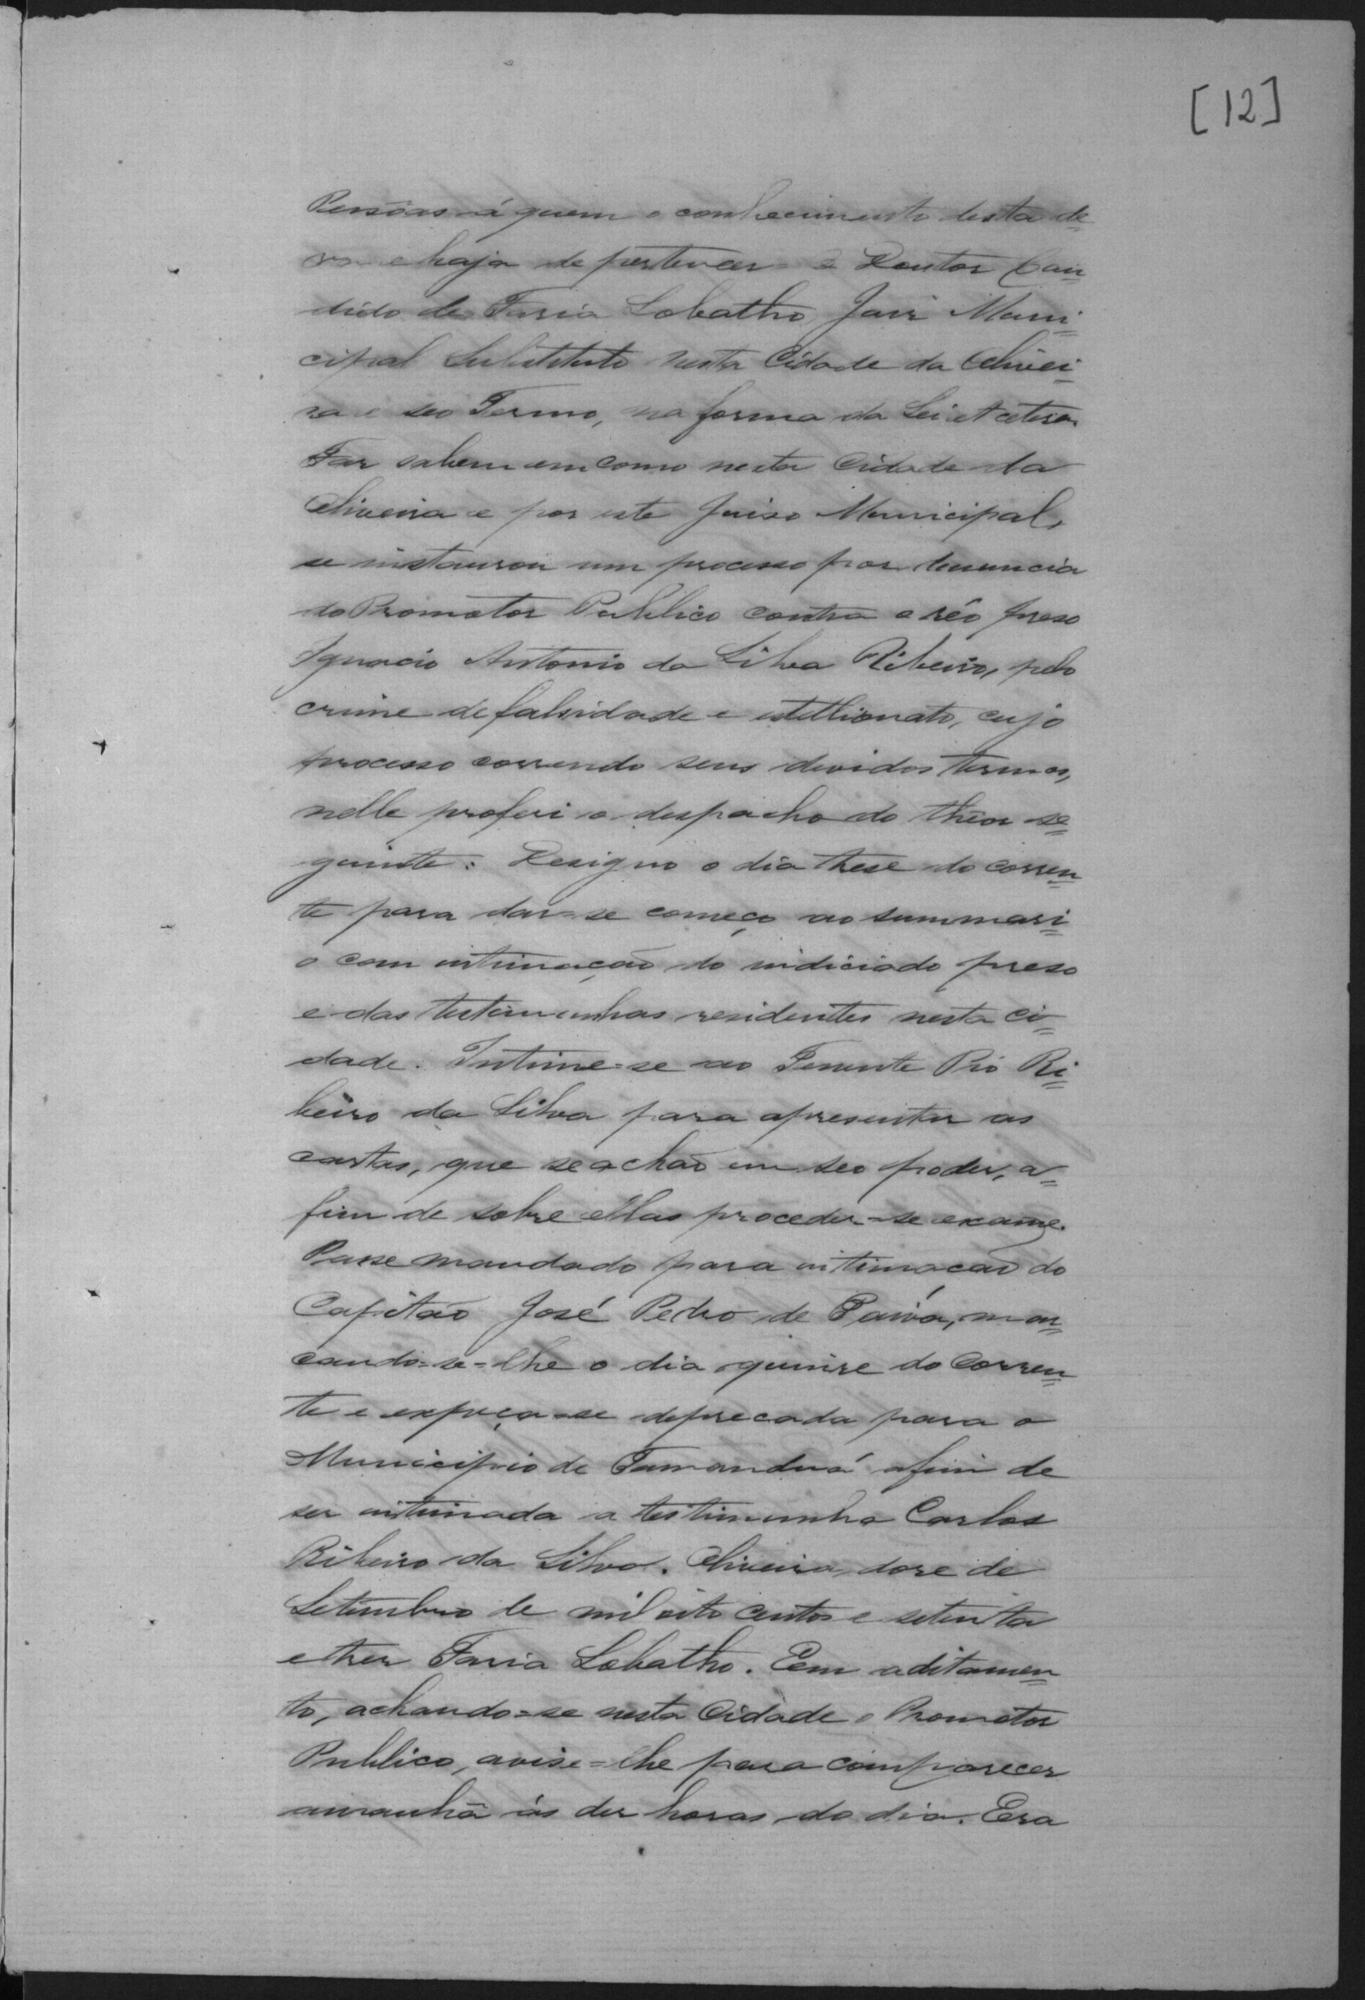 [12]
Pessoas á quem o conhecimento desta de=
va e haja de pertencer = o Doutor Can=
dido de Faria Lobatho Juiz Muni=
cipal Substituto nesta Cidade da Olivei=
ra e seo Termo, na forma da Lei etcetera
Faz saber em como nesta Cidade da
Oliveira e por este Juiso Municipal,
se instaurou um processo por denuncia
do Promotor Publico contra o réo preso
Ignacio Antonio da Silva Ribeiro, pelo
crime de falsidade e estellionato, cujo
processo correndo seus devidos termos,
nelle proferi o despacho do thêor se=
guinte: Designo o dia trese do corren=
te para dar-se começo ao summari=
o com intimação do indiciado preso
e das testimunhas residentes nesta ci=
dade. Intime-se ao Tenente Pio Ri=
beiro da Silva para apresentar as
cartas, que se achão em seo poder, a=
fim de sobre ellas proceder-se exame.
Passe mandado para intimação do
Capitão José Pedro de Paiva, mar=
cando-se-lhe o dia quinse do corren=
te e expeça-se deprecada para o
Municipio de Tamanduá afim de
ser intimada a testimunha Carlos
Ribeiro da Silva. Oliveira, dose de
Setembro de mil oito centos e setenta
e tres Faria Lobatho. Em aditamen=
to, achando=se nesta Cidade o Promotor
Publico, avise=lhe para comparecer
amanhã ás des horas do dia. Era